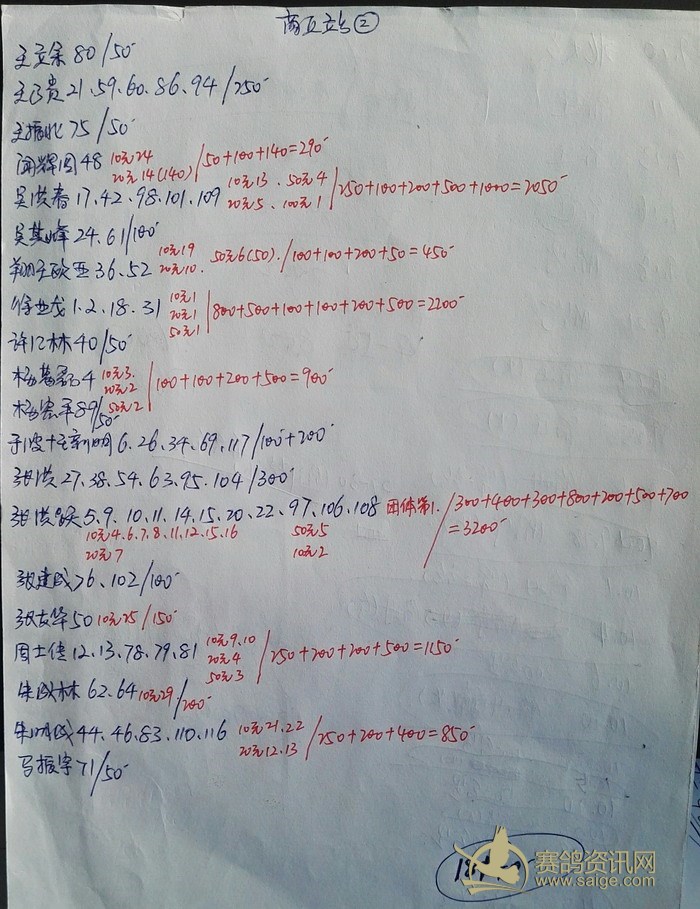 商丘立占②
王立余 80/50
王了贵 21.59.60.86.94/250
王振北 75/50
闻辉周 48 10元24 20元14(140)/50+100+140=290
吴洪春 17.42.98.101.109 10元13.50元4 20元5.100元1/250+100+200+500+1000=2050
吴其峰 24.61/100
翔宇王欧亚 36.52 10元19 20元10. 50元6(50)./100+100+200+50=450
徐世战 1.2.18.31 10元1 20元1 50元1/800+500+100+100+200+500=2200
许仁林 40/50
杨 4 10元3. 20元2 50元2/100+100+200+500=900
杨宪平 89/50
于波+王新明 6.26.34.69.117/100+200
张洪 27.38.54.63.95.104/300
张洪 5.9.10.11.14.15.20.22.97.106.108 团体第1./300+400+300+800+200+500+700
10元4.6.7.8.11.12.15.16 50元5 =3200
20元7 10元2
张建成 76、102/100
张友华 50 10元25/150
周士传 12.13.78.79.81 10元9.10 20元4 50元3/250+200+200+500=1150
朱成林 62.64 10元29/200
朱明战 44.46.83.110.116 10元21.22 20元12.13/250+200+400=850
马振宇 71/50
赛鸽资讯网
www.saige.com